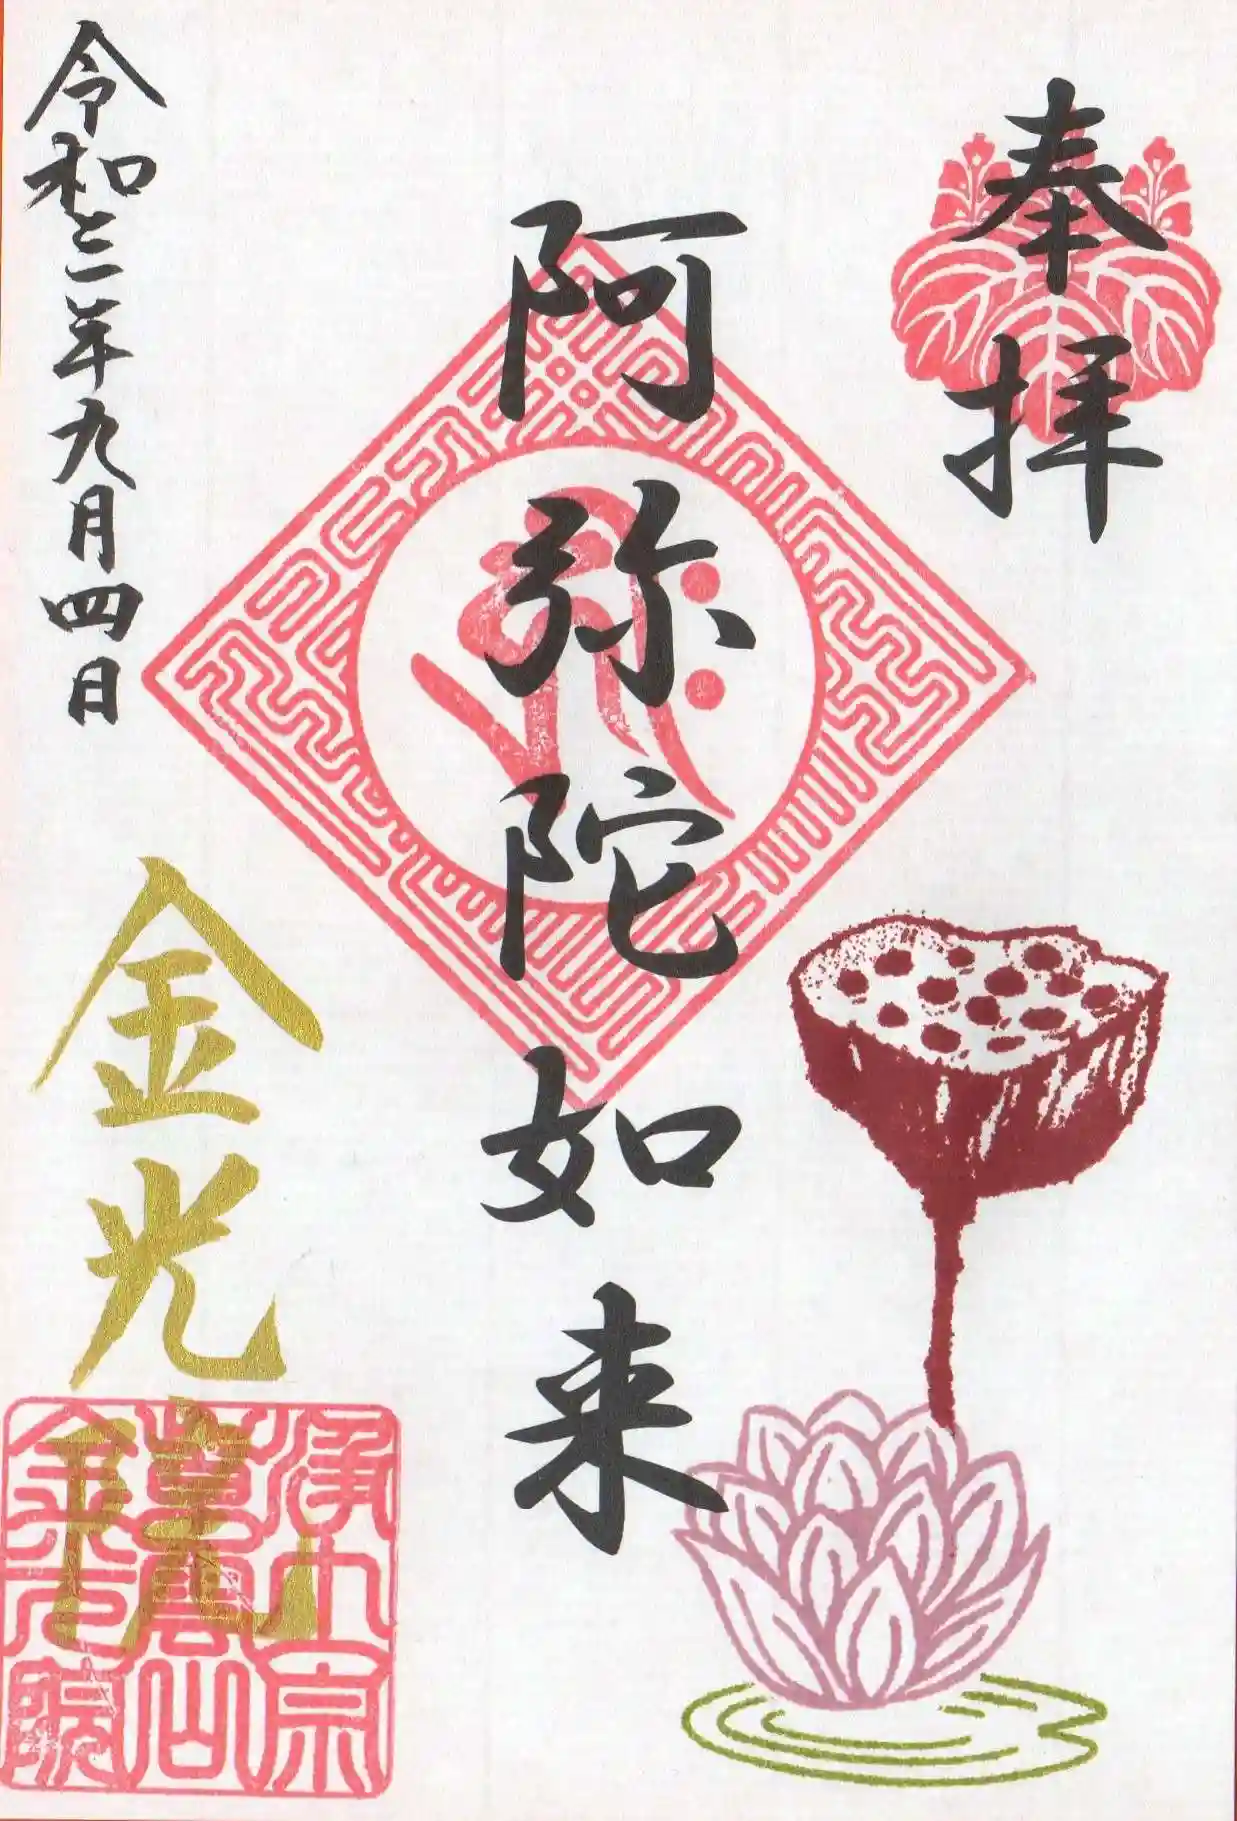 奉拝
阿弥陀如来
令和三年九月四日
金光院
浄土宗
金光院